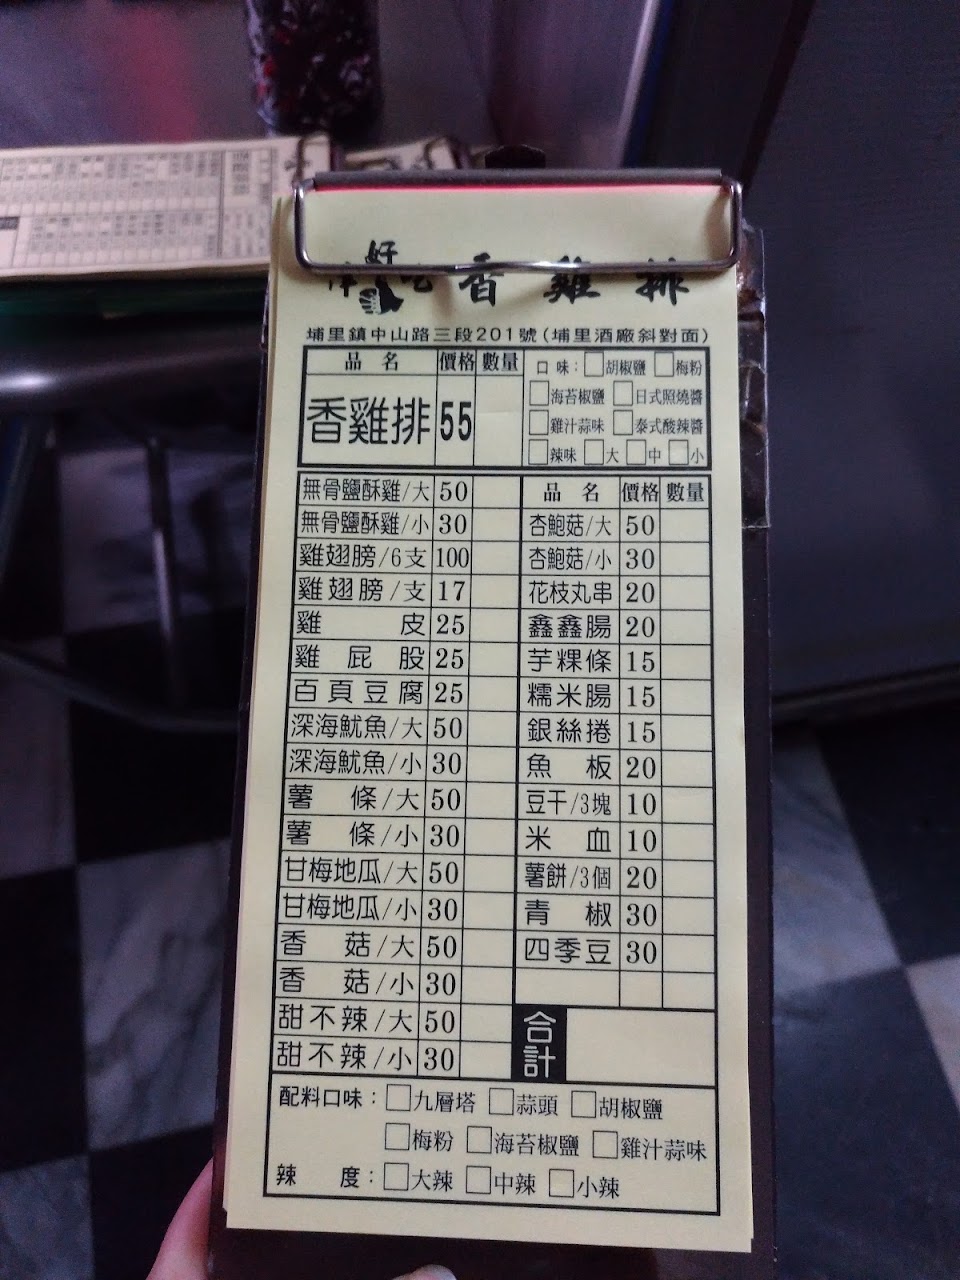 好
吃 香雞排
埔里鎮中山路三段201號(埔里酒廠斜對面)
品名 價格 數量
香雞排 55
口味：□胡椒鹽 □梅粉
□海苔椒鹽 □日式照燒醬
□雞汁蒜味 □泰式酸辣醬
□辣味 □大 □中 □小
無骨鹽酥雞/大 50
無骨鹽酥雞/小 30
雞翅膀/6支 100
雞翅膀/支 17
雞皮 25
雞屁股 25
百頁豆腐 25
深海魷魚/大 50
深海魷魚/小 30
薯條/大 50
薯條/小 30
甘梅地瓜/大 50
甘梅地瓜/小 30
香菇/大 50
香菇/小 30
甜不辣/大 50
甜不辣/小 30
品名 價格 數量
杏鮑菇/大 50
杏鮑菇/小 30
花枝丸串 20
鑫鑫腸 20
芋粿條 15
糯米腸 15
銀絲捲 15
魚板 20
豆干/3塊 10
米血 10
薯餅/3個 20
青椒 30
四季豆 30
合計
配料口味：□九層塔 □蒜頭 □胡椒鹽
□梅粉 □海苔椒鹽 □雞汁蒜味
辣度：□大辣 □中辣 □小辣